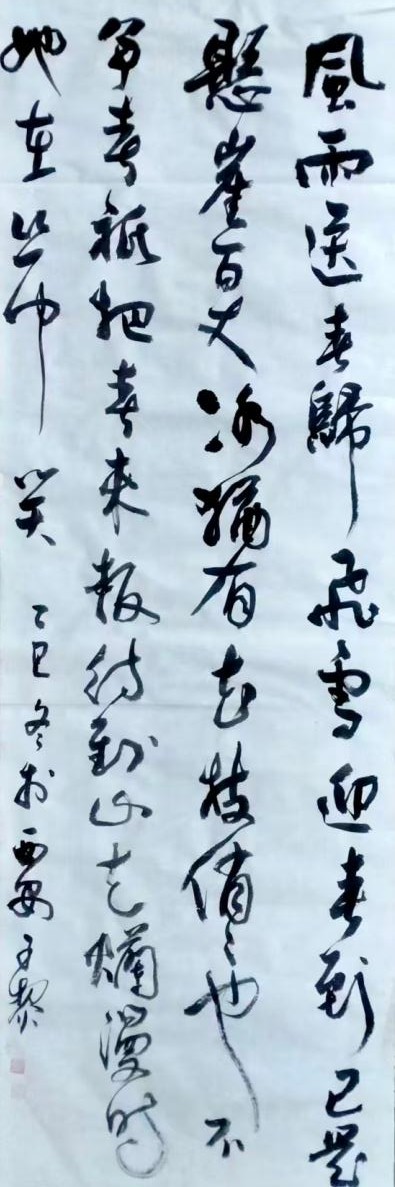 風雨送春歸飛雪迎春到已是
懸崖百丈冰猶有花枝俏〻也不
争春祇把春来报待到山花爛漫时
她在丛中笑 乙巳冬於西安